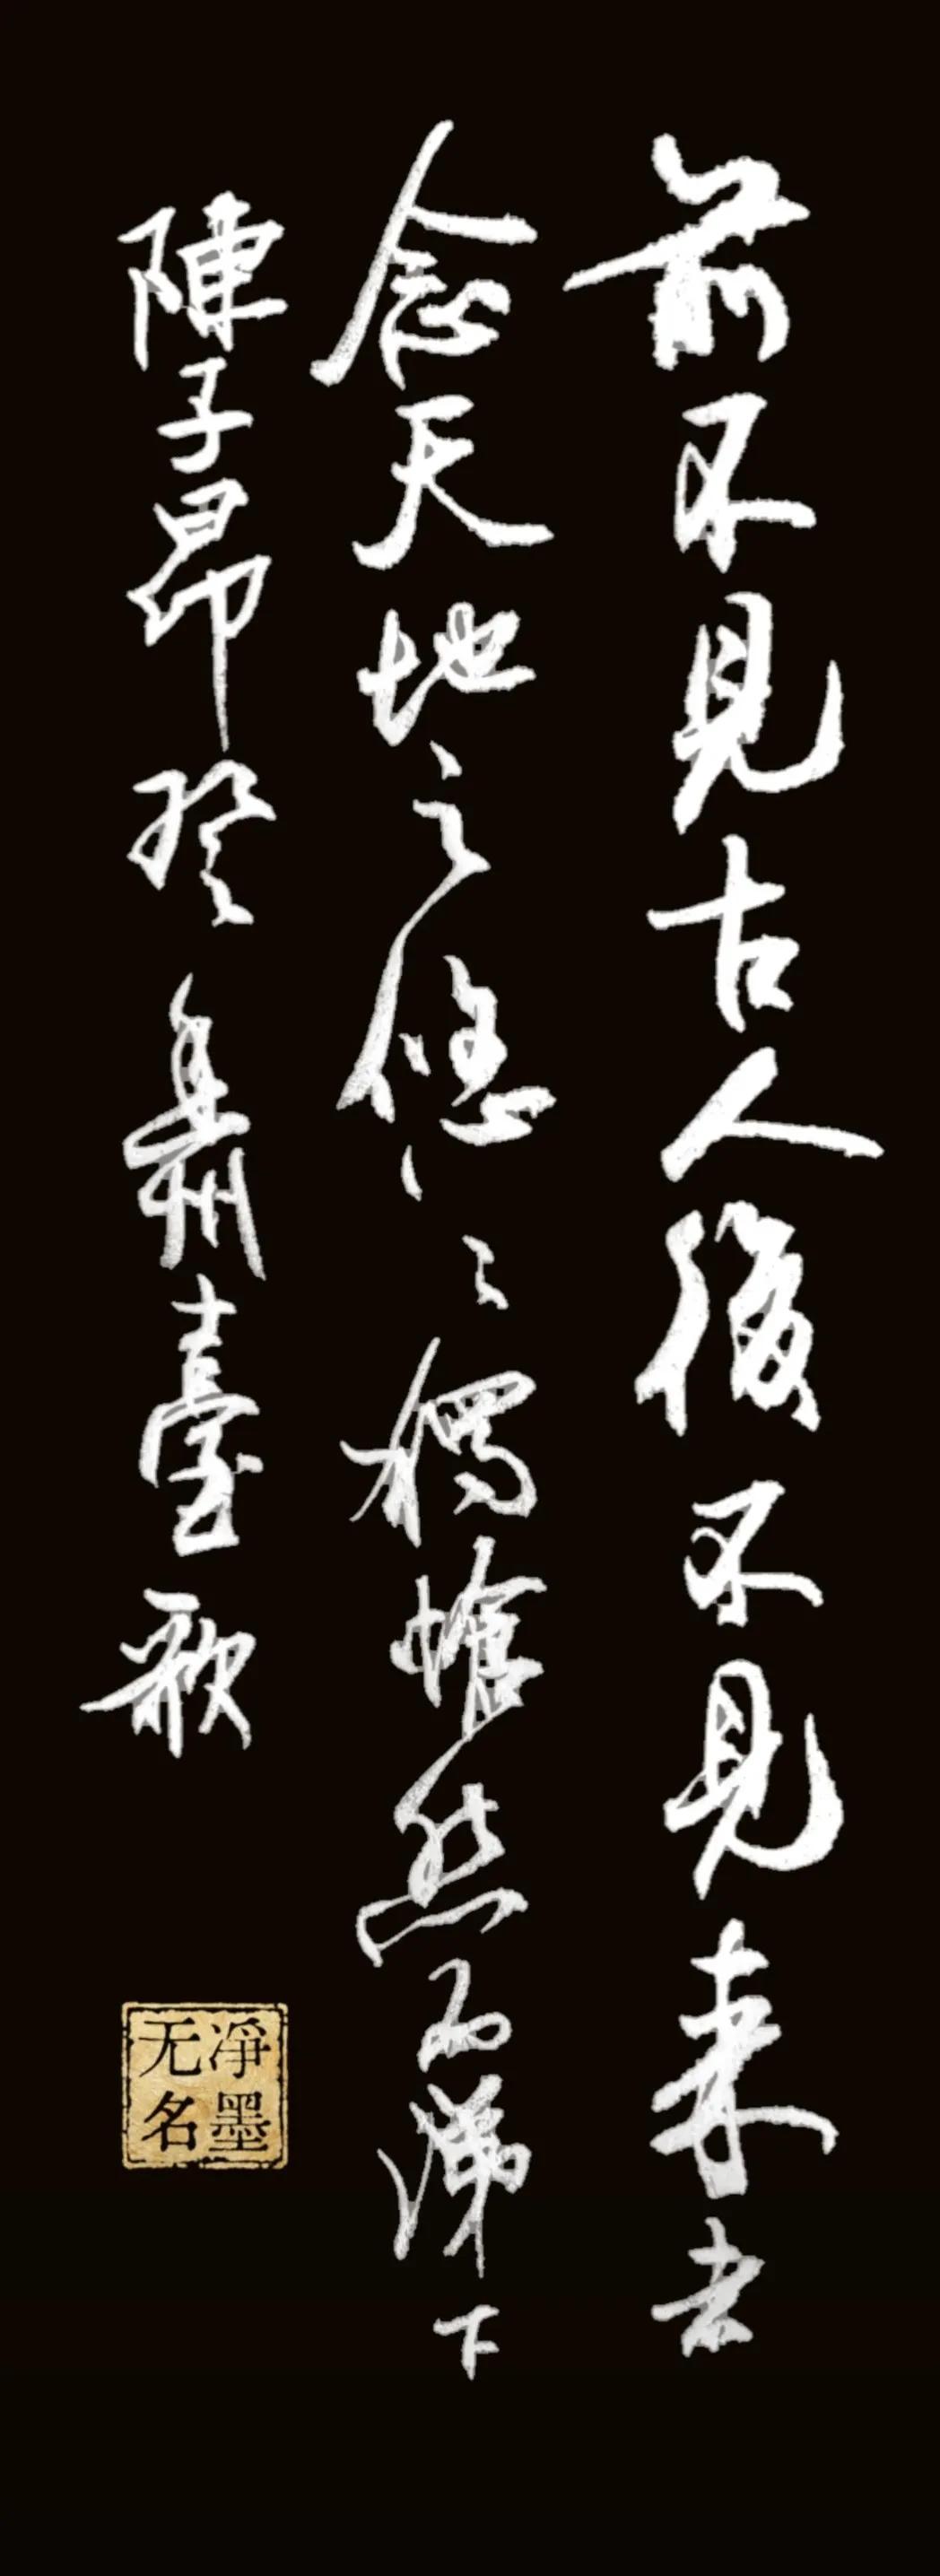 前不見古人後不見来者
念天地之悠々獨愴然而涕下
陳子昂登幽州臺歌
净墨
无名